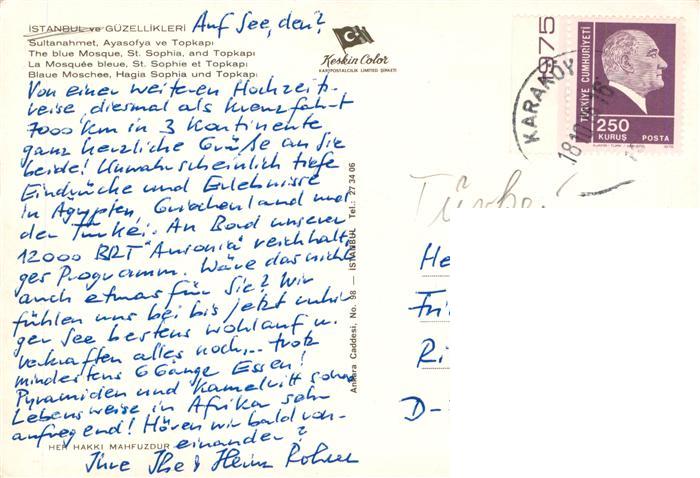 İSTANBUL ve GÜZELLİKLERİ
Auf See, den?
Sultanahmet, Ayasofya ve Topkapı
The blue Mosque, St. Sophia, and Topkapı
La Mosquée bleue, St. Sophie et Topkapı
Blaue Moschee, Hagia Sophia und Topkapı
Keskin Color
KARTPOSTALCILIK LIMITED ŞİRKETİ
Von einer weiteren Hochzeits-
reise, diesmal als Kreuzfahrt
7000 km in 3 Kontinente
ganz herzliche Grüße an Sie
beide! Unwahrscheinlich tiefe
Eindrücke und Erlebnisse
in Ägypten, Griechenland und
der Türkei. An Bord unserer
12000 BRT "Ausonia" reichhalti-
ges Programm. Wäre das nicht
auch etwas für Sie? Wir
fühlen uns bei bis jetzt ruhi-
ger See bestens wohlauf u.
verkraften alles noch... trotz
mindestens 6 Gänge Essen!
Pyramiden und Kamelritt sowie
Lebensweise in Afrika sehr
aufregend! Hören wir bald von-
einander?
HER HAKKI MAHFUZDUR
Ihre Ilse & Heinz
Ankara Caddesi, No. 98 — İSTANBUL Tel.: 27 34 06
1975
TÜRKİYE CUMHURİYETİ
250
KURUŞ
POSTA
KARAKÖY
18.10
Türkei
He
Fri
Ri
D-